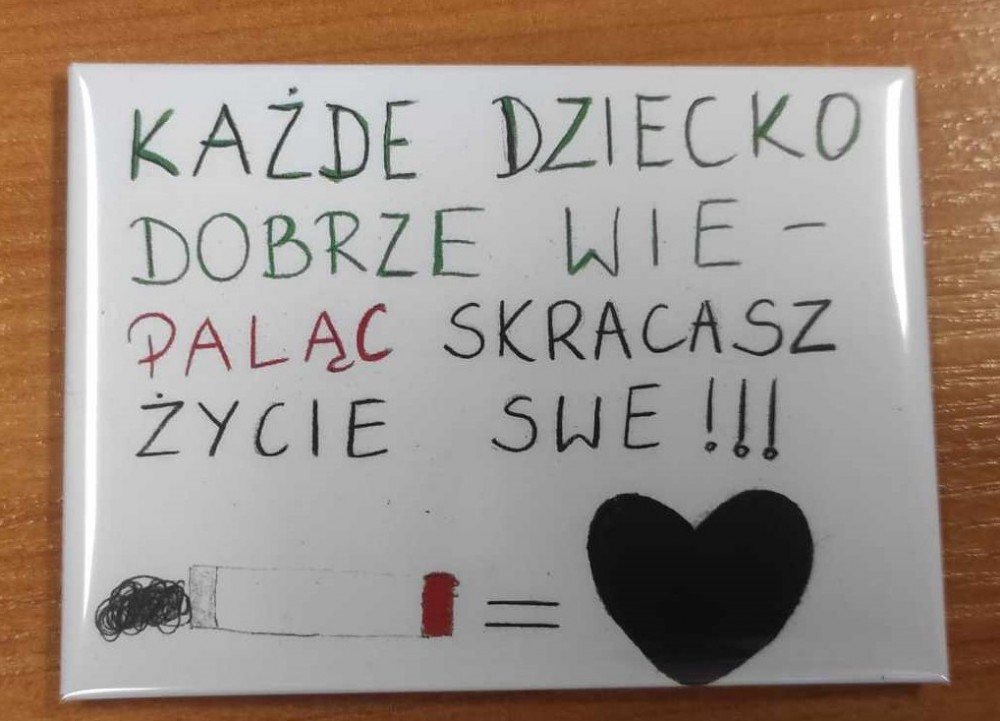 KAŻDE DZIECKO
DOBRZE WIE -
PALĄC SKRACASZ
ŻYCIE SWE !!!
=